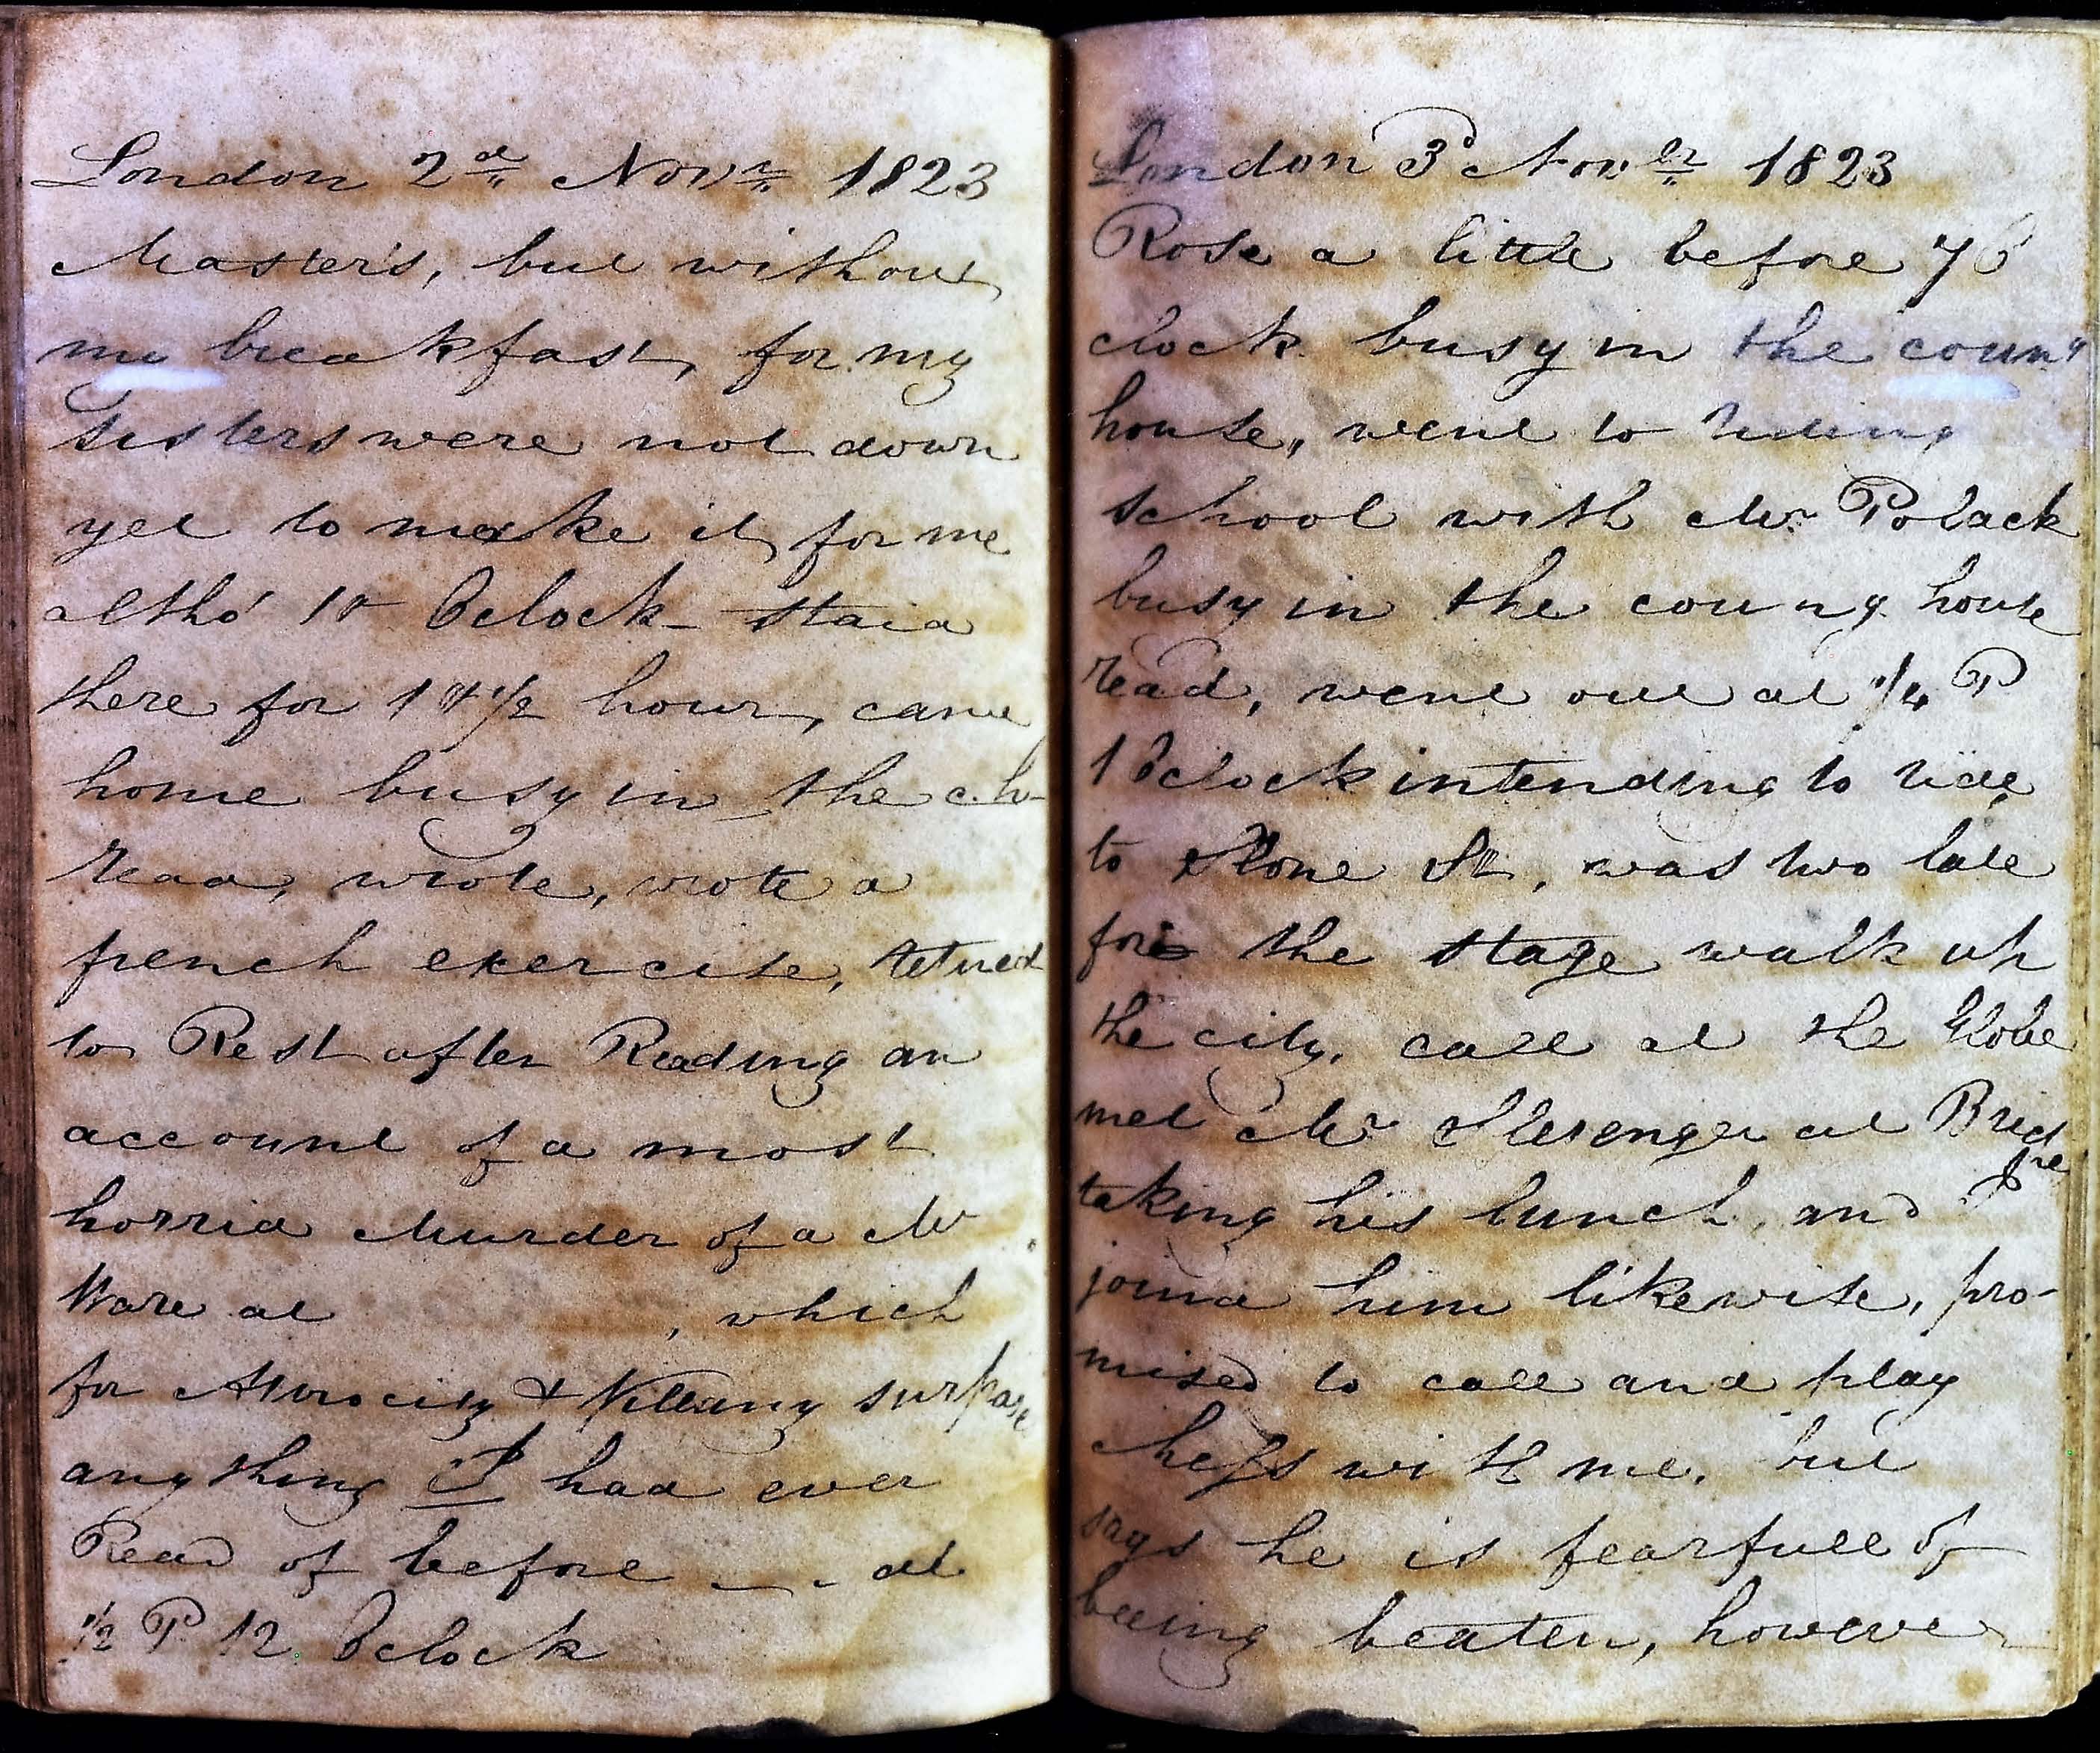 London 2d Novr 1823
Master's, but without
my breakfast, for my
sisters were not down
yet to make it for me
altho' 10 Oclock – staid
there for 1 & 1/2 hour, came
home busy in the c.h-
read, wrote, wrote a
french exercise, retired
to Rest after Reading an
account of a most
horrid Murder of a Mr
Ware at , which
for Atrocity & Villany surpase
anything I had ever
Read of before – – at
1/2 P. 12. Oclock
London 3d Novbr 1823
Rose a little before 7 O
clock busy in the coung
house, went to riding
school with Mr Polack
busy in the coung house
read, went out at 1/4 P
1 Oclock intending to ride
to Slone St, was two late
for the stage walk up
the city. call at the Globe
met Mr at Bridge
taking his lunch, and I
joind him likewise, pro-
mised to call and play
chess with me. but
says he is fearfull of
beeing beaten, however